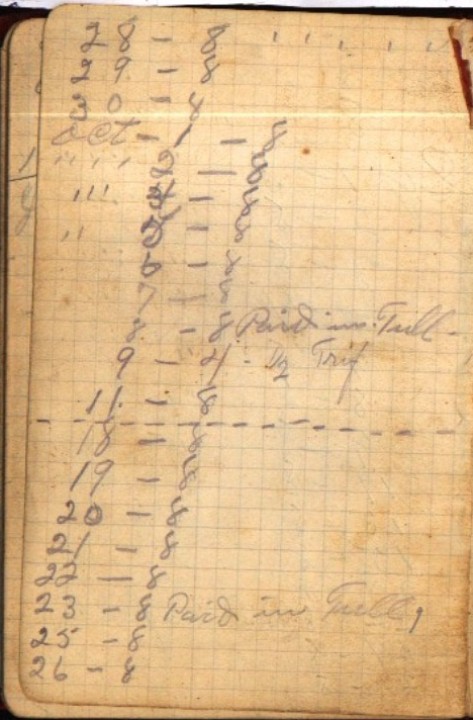 28 - 8
29 - 8
30 - 8
Oct - 1 - 8
" " 2 - 8
''' 4 - 8
'' 5 - 8
6 - 8
7 - 8
8 - 8 Paid in Full -
9 - 4 - 1/2
11 - 8
18 - 8
19 - 8
20 - 8
21 - 8
22 - 8
23 - 8 Paid in Full,
25 - 8
26 - 8